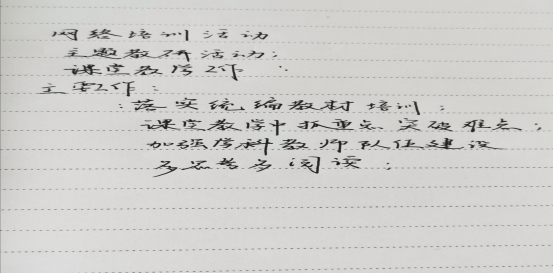 网络培训活动
主题教研活动;
课堂教学工作;
主要工作:
落实统编教材培训;
课堂教学中抓重点突破难点;
加强学科教师队伍建设
多思考多阅读;